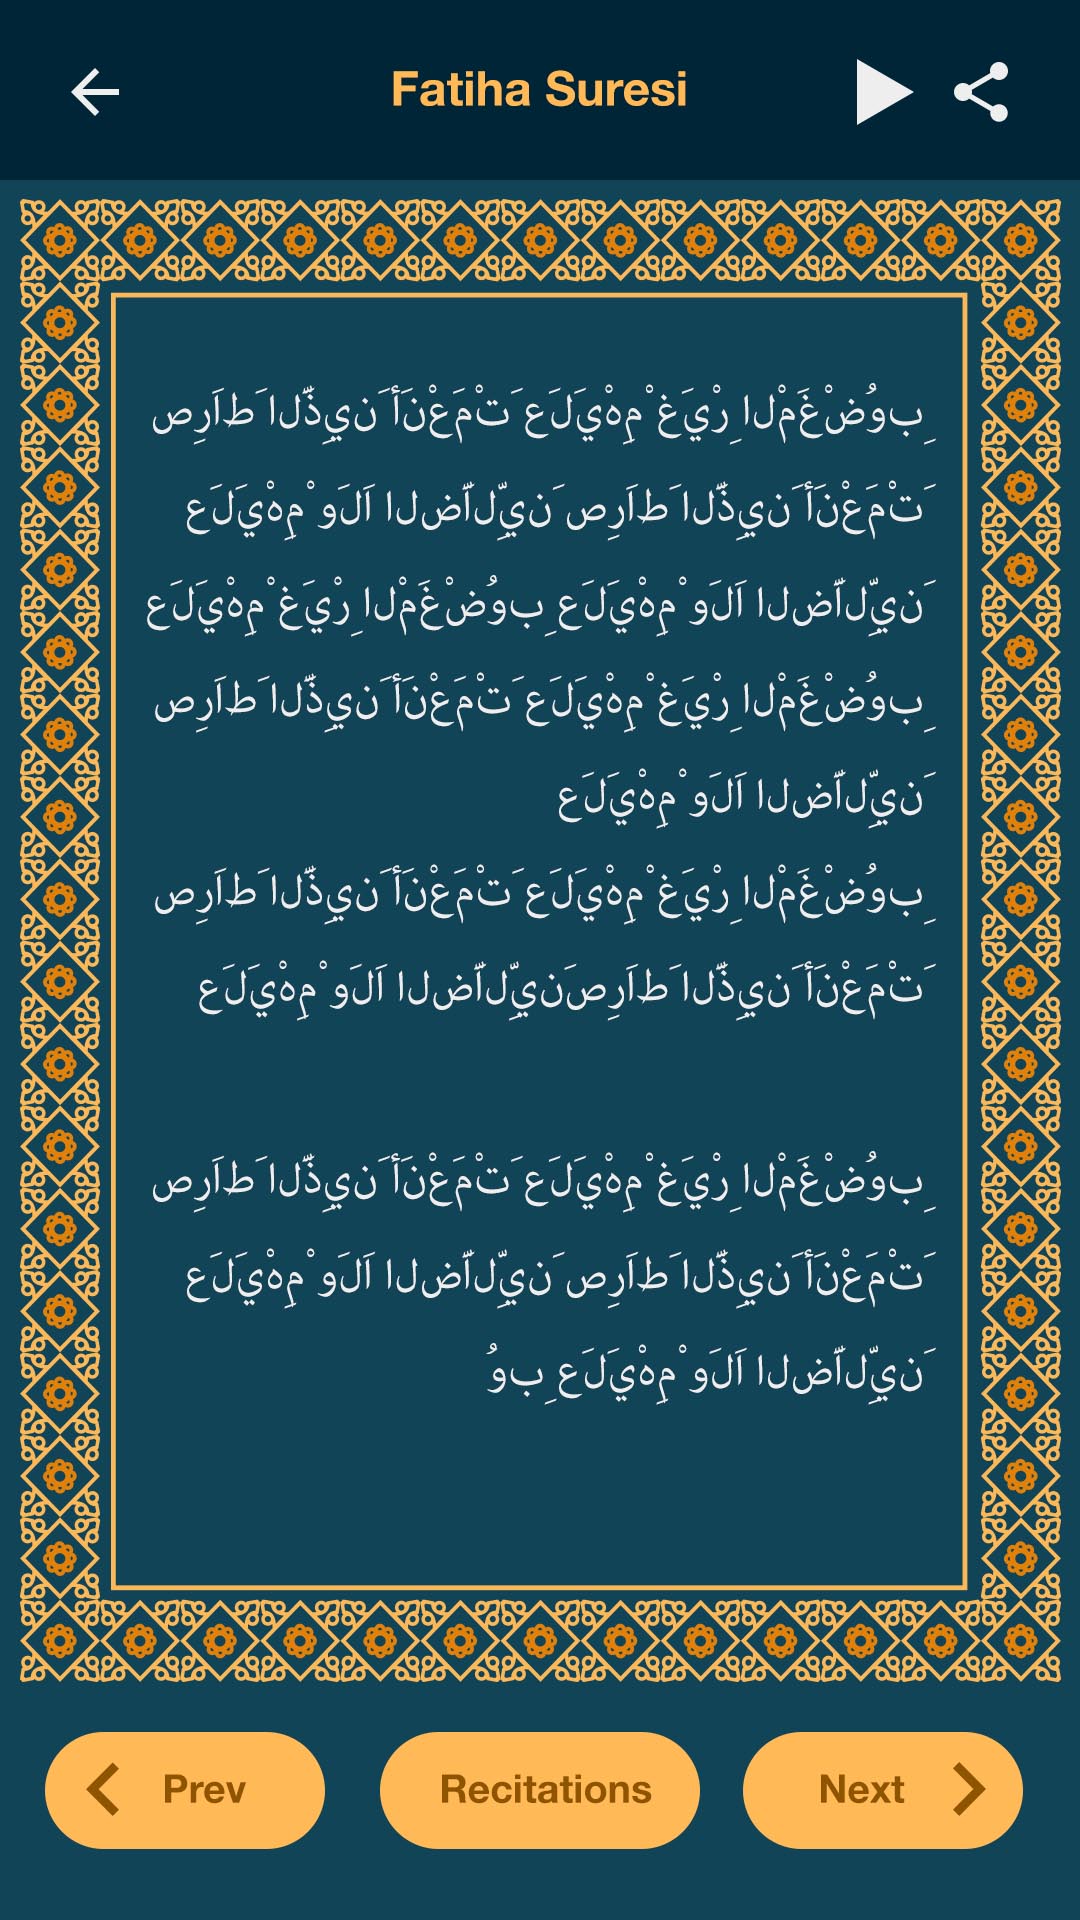 Fatiha Suresi
صِرَاطَ الَّذِينَ أَنْعَمْتَ عَلَيْهِمْ غَيْرِ الْمَغْضُوبِ
عَلَيْهِمْ وَلَا الضَّالِّينَ صِرَاطَ الَّذِينَ أَنْعَمْتَ
عَلَيْهِمْ غَيْرِ الْمَغْضُوبِ عَلَيْهِمْ وَلَا الضَّالِّينَ
صِرَاطَ الَّذِينَ أَنْعَمْتَ عَلَيْهِمْ غَيْرِ الْمَغْضُوبِ
عَلَيْهِمْ وَلَا الضَّالِّينَ
صِرَاطَ الَّذِينَ أَنْعَمْتَ عَلَيْهِمْ غَيْرِ الْمَغْضُوبِ
عَلَيْهِمْ وَلَا الضَّالِّينَصِرَاطَ الَّذِينَ أَنْعَمْتَ
صِرَاطَ الَّذِينَ أَنْعَمْتَ عَلَيْهِمْ غَيْرِ الْمَغْضُوبِ
عَلَيْهِمْ وَلَا الضَّالِّينَ صِرَاطَ الَّذِينَ أَنْعَمْتَ
وُبِ عَلَيْهِمْ وَلَا الضَّالِّينَ
Prev
Recitations
Next